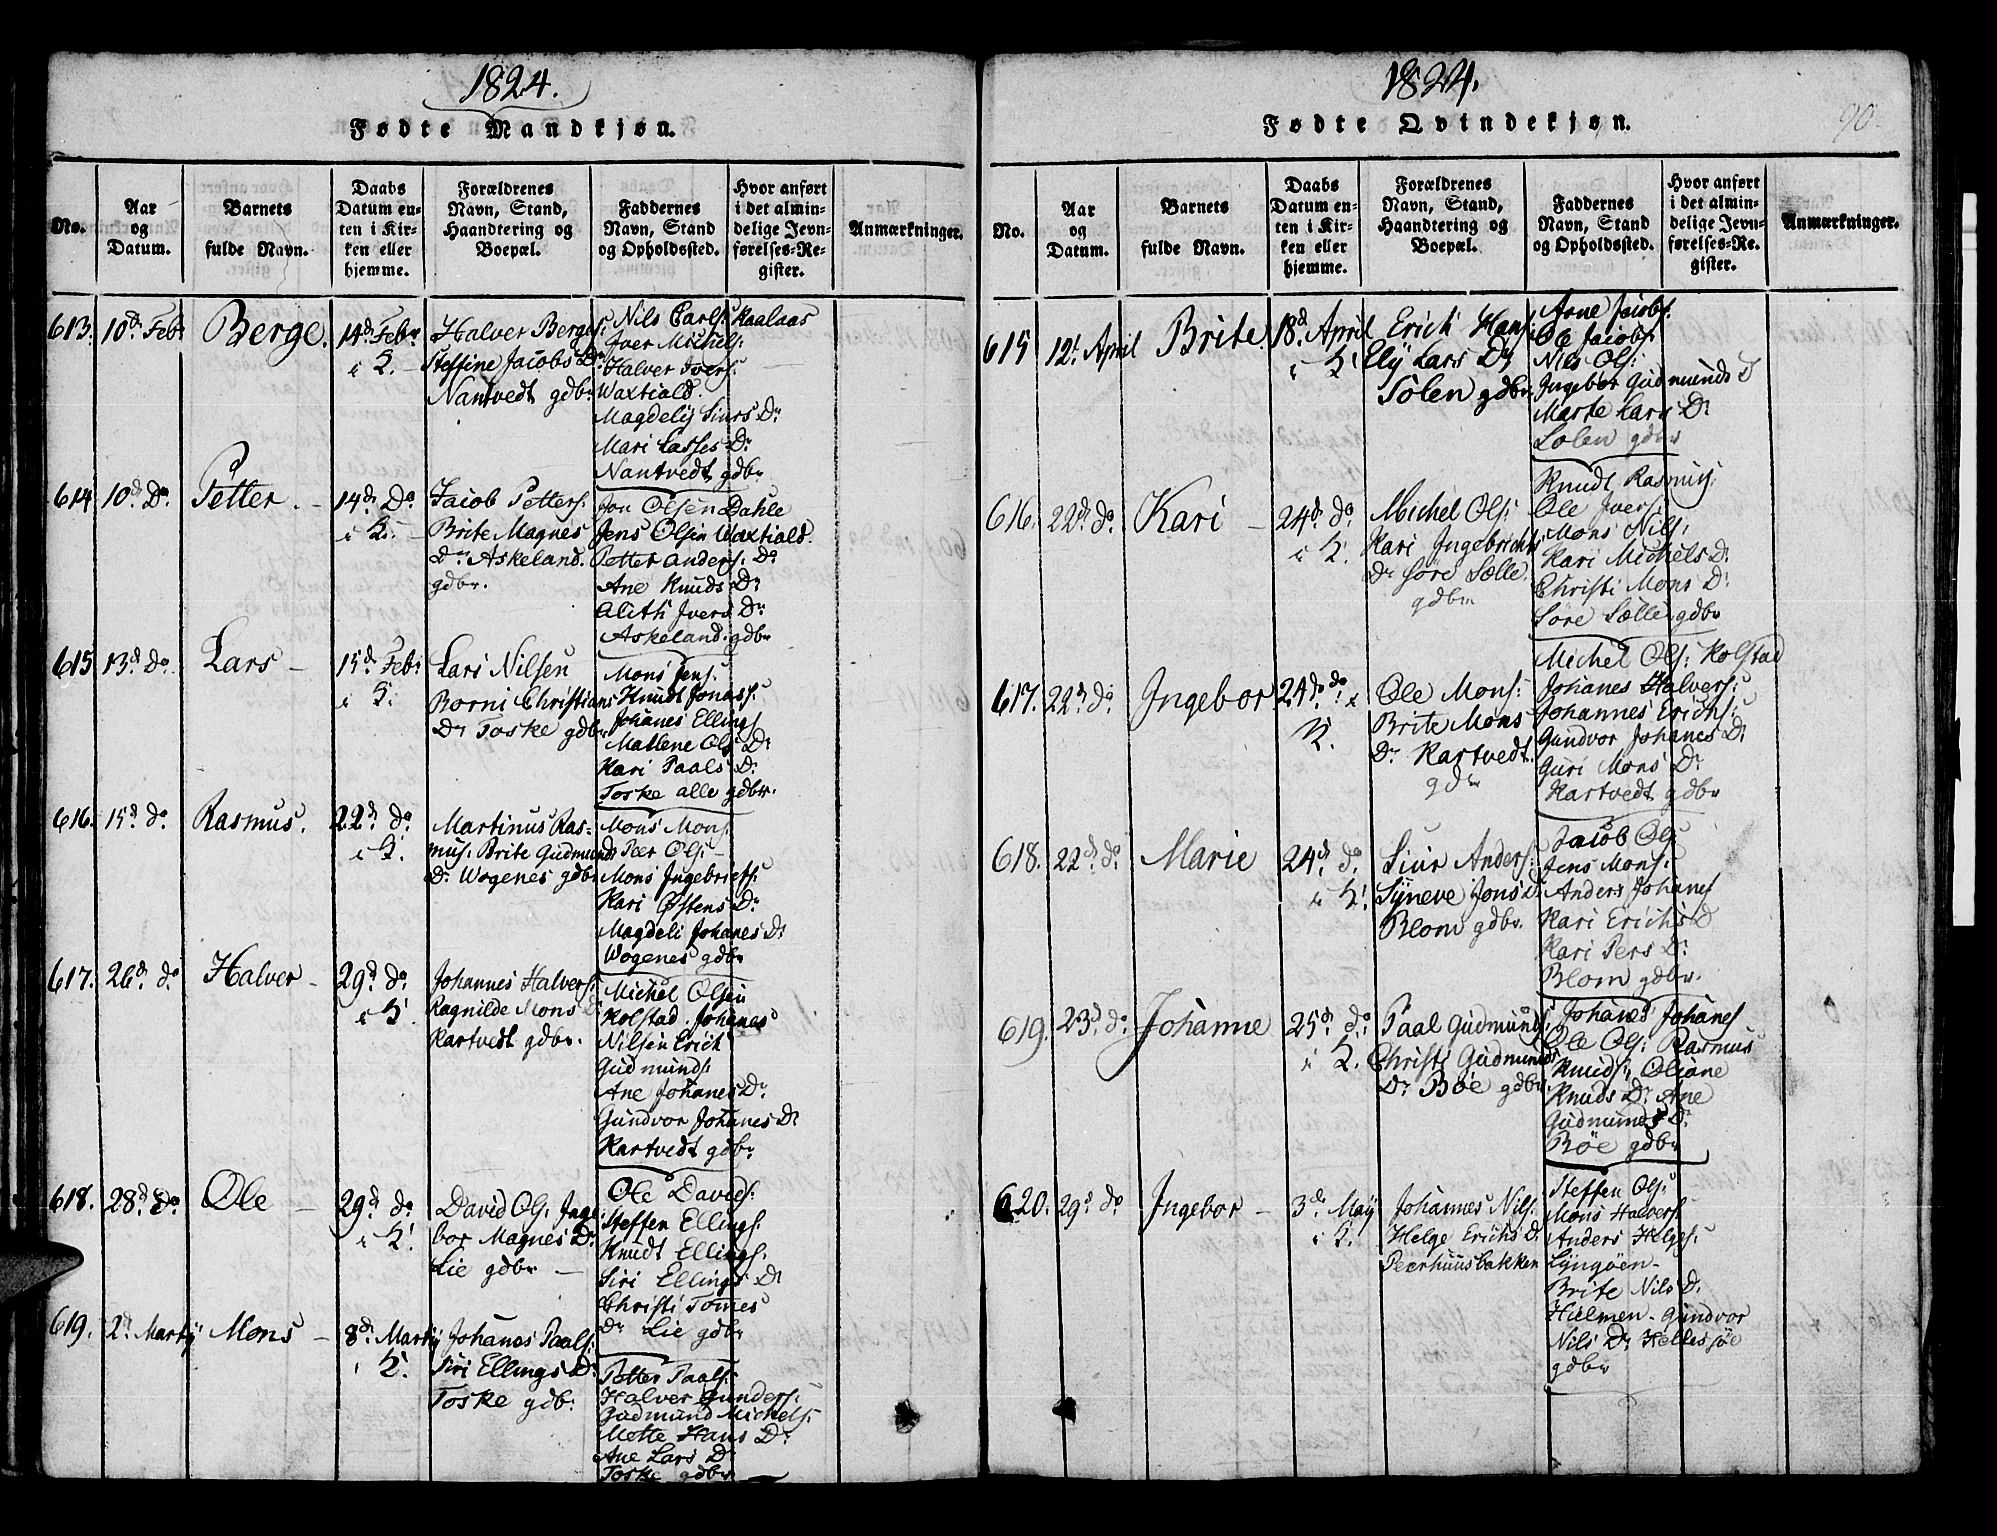 1824.
Fødte Mandkjøn.
No.
Aar
og
Datum.
Barnets
fulde Navn.
Daabs
Datum en-
ten i Kir-
ken eller
hjemme.
Forældrenes
Navn, Stand,
Haandtering og
Boepæl.
Faddernes
Navn, Stand
og Opholdssted.
Hvor anført
i det almin-
delige Jevn-
førelses-Re-
gister.
Anmærkninger.
613. 10d Feb. Berge. 14d Febr i K.
Halver Bergs:
Steffine Jacobs Dr
Nantvedt gdbr
Nils Carls: Kaalaas
Iver Michels:
Halver Ivers:
Waxtiald.
Magdely Siurs Dr
Mari Lasses Dr
Nantvedt gdbr
614 10d Do. Petter. 14d Do i K.
Jacob Petters:
Brite Magnes
Dr Askeland.
gdbr.
Jon Olsen Dahle
Jens Olsen Waxtiald.
Petter Anders: Do
Ane Knuds Dr
Alith Ivers Dr
Askeland. gdbr
615 13d Do. Lars 15d Feb: i K.
Lars Nilsen
Borni Christians
Dr Toske gdbr
Mons Jens:
Knudt Jonas:
Johanes Ellings
Mallene Ols Dr
Kari Paals Dr
Toske alle gdbr.
616. 15d do. Rasmus. 22d do i K.
Martinus Ras-
mus: Brite Gudmunds
Dr Wogenes gdbr
Mons Mons:
Peer Ols:
Mons Ingebricts:
Kari Østens Dr
Magdeli Johanes Dr
Wogenes gdbr
617. 26d do Halver 29d do i K.
Johannes Halvers:
Ragnilde Mons D
Kartvedt gdbr.
Michel Olsen
Kolstad. Johanes
Nilsen Erich
Gudmunds:
Ane Johanes Dr
Gundvor Johanes Dr
Kartvedt gdbr
618. 28d do. Ole 29d do i K.
David Ols: Inge
bor Magnes Dr
Lie gdbr
Ole Davids:
Steffen Ellings:
Knudt Ellings:
Siri Ellings Dr
Christi Tomes
Dr Lie gdbr
619. 2d Marty Mons 8d Marty i K.
Johanes Paals:
Siri Ellings Dr
Toske gdb:
Petter Paals:
Halver Gunders:
Gudmund Michels:
Mette Hans Dr
Ane Lars Dr
Toske gdbr
1824.
90
Fødte Qvindekjøn.
No.
Aar
og
Datum.
Barnets
fulde Navn.
Daabs
Datum en-
ten i Kir-
ken eller
hjemme.
Forældrenes
Navn, Stand,
Haandtering og
Boepæl.
Faddernes
Navn, Stand
og Opholdssted.
Hvor anført
i det almin-
delige Jevn-
førelses-Re-
gister.
Anmærkninger.
615 12t April Brite 18d April i K.
Erich Hans:
Ely Lars Dr
Solen gdbr
Arne Jacobs:
Ole Jacobs
Nils Ols:
Ingebor Gudmunds D
Marte Lars Dr
Solen gdbr
616. 22d do. Kari 24d do i K.
Michel Ols:
Kari Ingebrichts
Dr Søre Sælle
gdbr
Knudt Rasmus:
Ole Ivers
Mons Nils:
Kari Michels Dr
Christi Mons Dr
Søre Sælle gdbr
617. 22d do. Ingebor 24d do i K.
Ole Mons:
Brite Mons
Dr Kartvedt
gdr
Michel Ols: Kolstad
Johanes Halvers:
Johannes Erichs:
Gundvor Johanes Dr
Guri Mons Dr
Kartvedt gdbr
618. 22d do. Marie 24d do i K.
Siur Anders:
Syneve Jons D
Blom gdbr.
Jacob Ols:
Jens Mons:
Anders Johanes
Kari Erichs D
Kari Pers Dr
Blom gdbr.
619. 23d do. Johanne 25d do: i K.
Paal Gudmunds:
Christi Gudmunds
Dr Böe gdbr.
Johanes Johanes
Ole Ols: Rasmus
Knuds: Oliane
Knuds Dr Ane
Gudmunds Dr
Böe gdbr
620. 29d do Ingebor 3d May i K.
Johannes Nils:
Helge Erichs D.
Peerhuusbakken
Steffen Ols:
Mons Halvers
Anders Helges:
Lyngöen
Brite Nils Dr
Hielmen. Gundvor
Nils Dr Hellesöe
gdbr